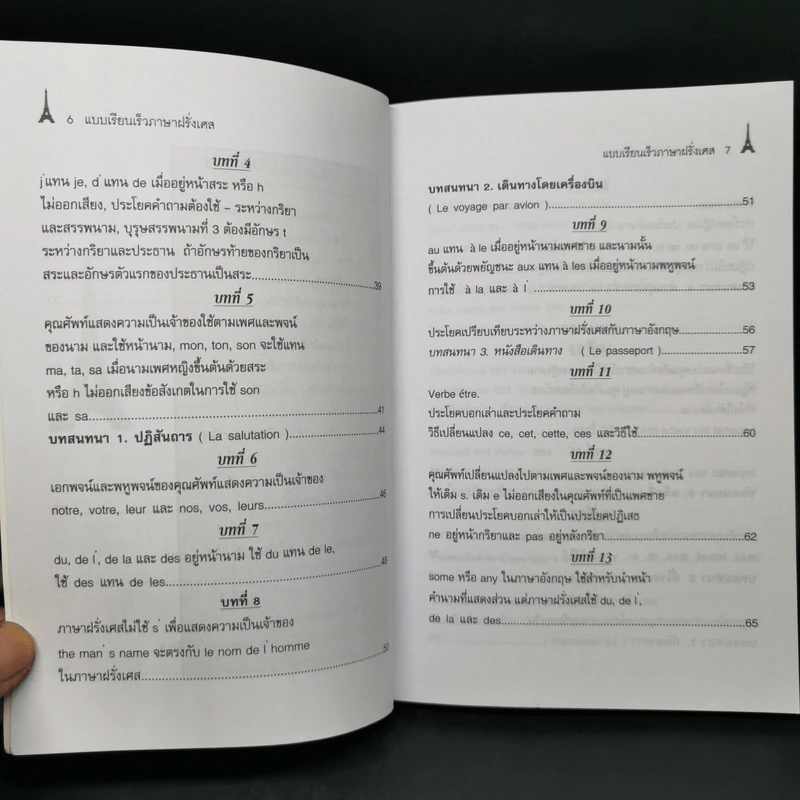 6 แบบเรียนเร็วภาษาฝรั่งเศส
บทที่ 4
j'แทน je, d' แทน de เมื่ออยู่หน้าสระ หรือ h
ไม่ออกเสียง, ประโยคคำถามต้องใช้ - ระหว่างกริยา
และสรรพนาม, บุรุษสรรพนามที่ 3 ต้องมีอักษร t
ระหว่างกริยาและประธาน ถ้าอักษรท้ายของกริยาเป็น
สระและอักษรตัวแรกของประธานเป็นสระ...............................39
บทที่ 5
คุณศัพท์แสดงความเป็นเจ้าของใช้ตามเพศและพจน์
ของนาม และใช้หน้านาม, mon, ton, son จะใช้แทน
ma, ta, sa เมื่อนามเพศหญิงขึ้นต้นด้วยสระ
หรือ h ไม่ออกเสียงข้อสังเกตในการใช้ son
และ sa...............................41
บทสนทนา 1. ปฏิสันถาร ( La salutation )...............................44
บทที่ 6
เอกพจน์และพหูพจน์ของคุณศัพท์แสดงความเป็นเจ้าของ
notre, votre, leur และ nos, vos, leurs...............................46
บทที่ 7
du, de l', de la และ des อยู่หน้านาม ใช้ du แทน de le,
ใช้ des แทน de les...............................48
บทที่ 8
ภาษาฝรั่งเศสไม่ใช้ s' เพื่อแสดงความเป็นเจ้าของ
the man's name จะตรงกับ le nom de l'homme
ในภาษาฝรั่งเศส...............................50
แบบเรียนเร็วภาษาฝรั่งเศส 7
บทสนทนา 2. เดินทางโดยเครื่องบิน
( Le voyage par avion )...............................51
บทที่ 9
au แทน à le เมื่ออยู่หน้านามเพศชาย และนามนั้น
ขึ้นต้นด้วยพยัญชนะ aux แทน à les เมื่ออยู่หน้านามพหูพจน์
การใช้ à la และ à l' ...............................53
บทที่ 10
ประโยคเปรียบเทียบระหว่างภาษาฝรั่งเศสกับภาษาอังกฤษ...............................56
บทสนทนา 3. หนังสือเดินทาง ( Le passeport )...............................57
บทที่ 11
Verbe étre.
ประโยคบอกเล่าและประโยคคำถาม
วิธีเปลี่ยนแปลง ce, cet, cette, ces และวิธีใช้...............................60
บทที่ 12
คุณศัพท์เปลี่ยนแปลงไปตามเพศและพจน์ของนาม พหูพจน์
ให้เติม s. เติม e ไม่ออกเสียงในคุณศัพท์ที่เป็นเพศชาย
การเปลี่ยนประโยคบอกเล่าให้เป็นประโยคปฏิเสธ
ne อยู่หน้ากริยาและ pas อยู่หลังกริยา...............................62
บทที่ 13
some หรือ any ในภาษาอังกฤษ ใช้สำหรับนำหน้า
คำนามที่แสดงส่วน แต่ภาษาฝรั่งเศสใช้ du, de l',
de la และ des...............................65